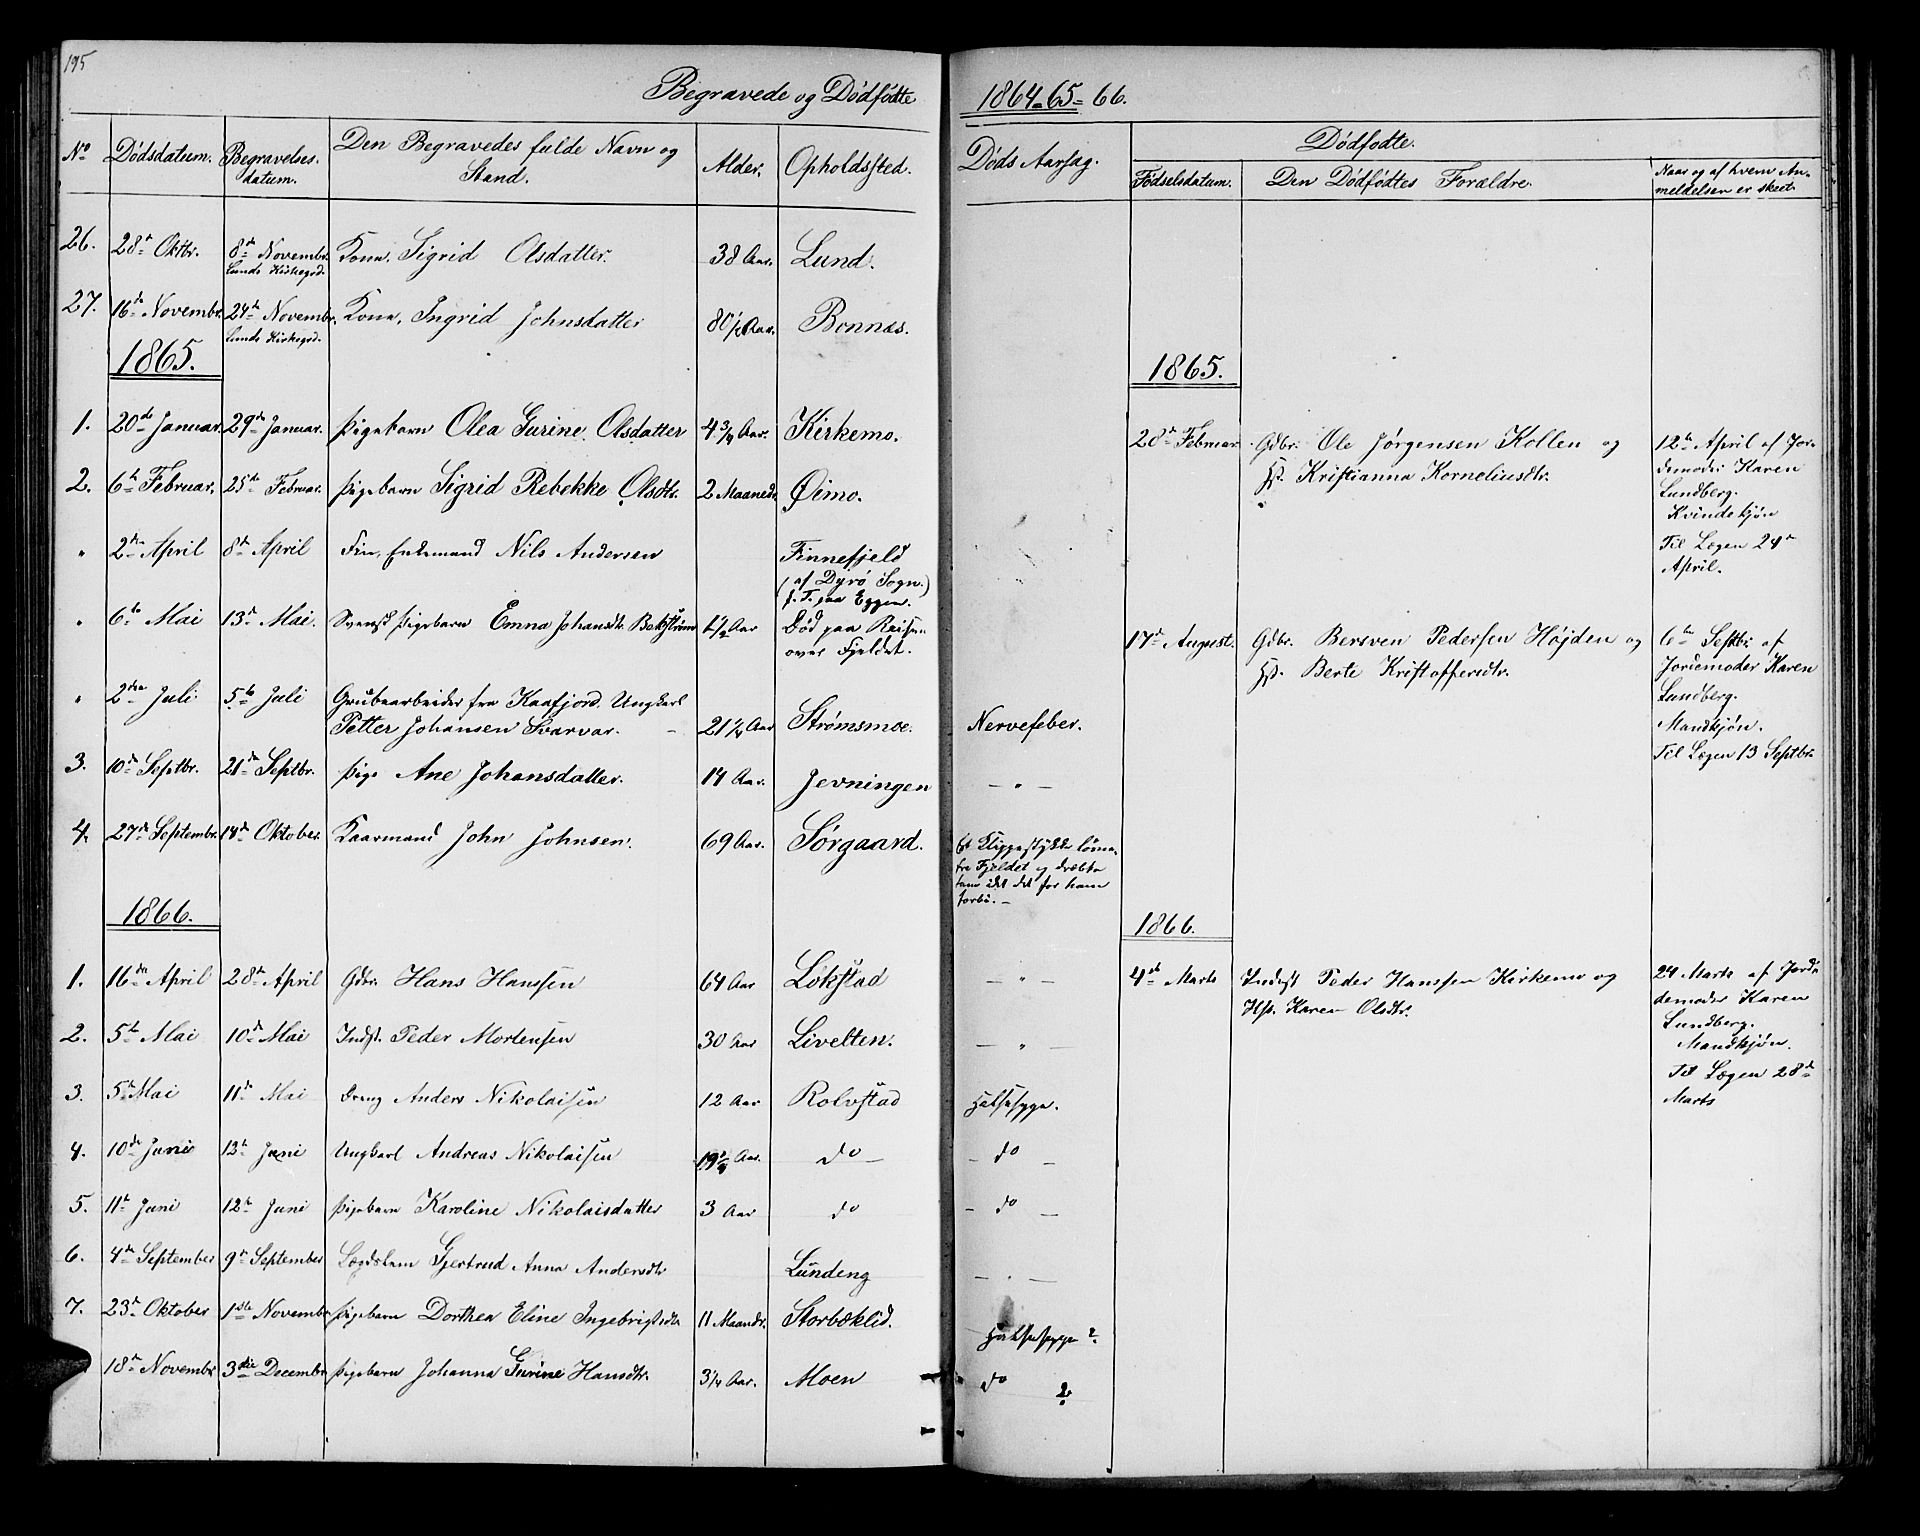 195
Begravede og Dødfødte
1864-65-66.
No Dødsdatum. Begravelsesdatum. Den Begravedes fulde Navn og Stand. Alder. Opholdssted. Døds Aarsag.
Dødfødte.
Fødselsdatum. Den Dødfødtes Forældre. Naar og af hvem Anmeldelsen er skeet
26. 28de Oktbr. 8de Novembr. Lunds Kirkegrd. Kone, Sigrid Olsdatter. 38 Aar. Lund.
27. 16de Novembr. 24de Novembr. Lunds Kirkegrd. Kone, Ingrid Johnsdatter 80 1/2 Aar. Bonnæs.
1865.
1. 20de Januar. 29de Januar. Pigebarn Olea Gurine Olsdatter 4 3/4 Aar. Kirkemo.
2. 6te Februar. 25de Februar. Pigebarn Sigrid Rebekke Olsdtr. 2 Maaneder Øimo.
" 2den April 8de April Fin, Enkemand Nils Andersen Finnefjeld
(af Dyrø Sogn.)
f. T. paa Eggen.
" 6te Mai 13de Mai. Svensk Pigebarn Emna Johansdtr. Bekstrøm 1 1/2 Aar Død paa Reisen
over Fjeldet.
" 2den Juli 5te Juli Grubearbeider fra Kaafjord. Ungkarl
Petter Johansen Svarvar. 21 1/4 Aar Strømsmoe. Nervefeber.
3. 10de Septbr. 21de Septbr. Pige Ane Johansdatter. 14 Aar. Jevningen - " -
4. 27de Septembr. 14de Oktober. Kaarmand John Johnsen. 69 Aar. Sørgaard. Et Klippestykke løsne
fra Fjeldet og dræbte
ham idet det for ham
forbi. -
1866.
1. 16de April 28de April Gdbr. Hans Hansen 64 Aar Løkstad - " -
2. 5te Mai 10de Mai Indst. Peder Mortensen 30 Aar Livelten. - " -
3. 5te Mai 11te Mai Dreng Anders Nikolaisen 12 Aar Rolvstad Halssyge.
4. 10de Juni 12te Juni Ungkarl Andreas Nikolaisen 19 3/4 Aar. do - - do -
5. 11te Juni 12te Juni Pigebarn Karoline Nikolaisdatter 3 Aar do - do -
6. 4de September 9de September Lægdslem Gjertrud Anna Andersdtr Lundeng - " -
7. 23de Oktober 1ste Novembr Pigebarn Dorthea Eline Ingebrigtsdtr 11 Maandr. Storbæklid. Halssyge?
18de Novembr 3die Decembr Pigebarn Johanna Gurine Hansdtr. 3 1/4 Aar. Moen do ?
1865.
28de Februar. Gdbr. Ole Jørgensen Kollen og
Hst. Kristianna Korneliusdtr.
12te April af Jordemoder Karen
Lundberg.
Kvindekjøn
Til Lægen 24de
April.
17de August. Gdbr. Bersven Pedersen Højden og
Hst. Berte Kristoffersdtr.
6te Septbr. af
Jordemoder Karen
Lundberg.
Mandkjøn.
Til Lægen 13 Septbr.
1866.
4de Marts Indst Peder Hanssen Kirkemo og
Hst. Karen Olsdtr.
24 Marts af Jordemoder Karen
Lundberg.
Mandkjøn.
Til Lægen 28de
Marts